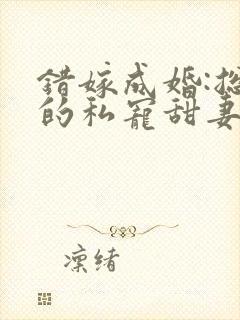 错嫁成婚:
的私宠甜妻
凛绪